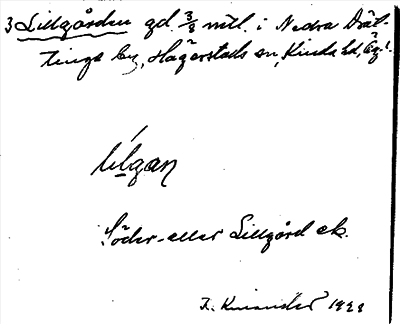 3 Lillgården gd. 3/8 mtl. i Nedra Dråt-
tinge by, Hägerstads sn, Kinda hd, Ög.
lílgan
Söder- eller Lillgård ek.
K. Kinander 1929